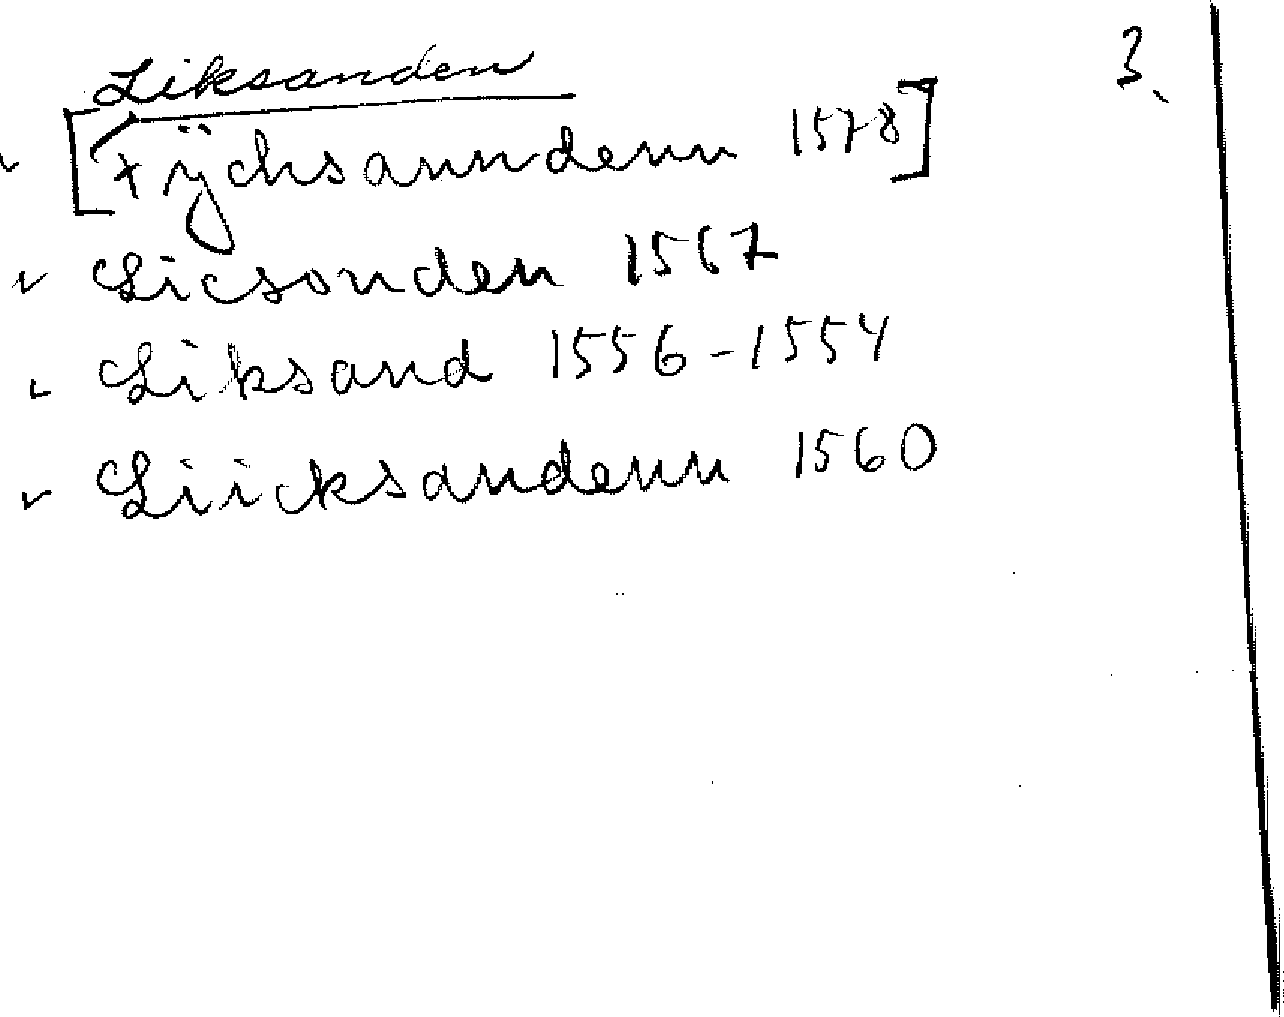 Liksanden 3.
[Fÿchsanndenn 1578]
Licsonden 1567
Liksand 1556-1554
Liicksandenn 1560